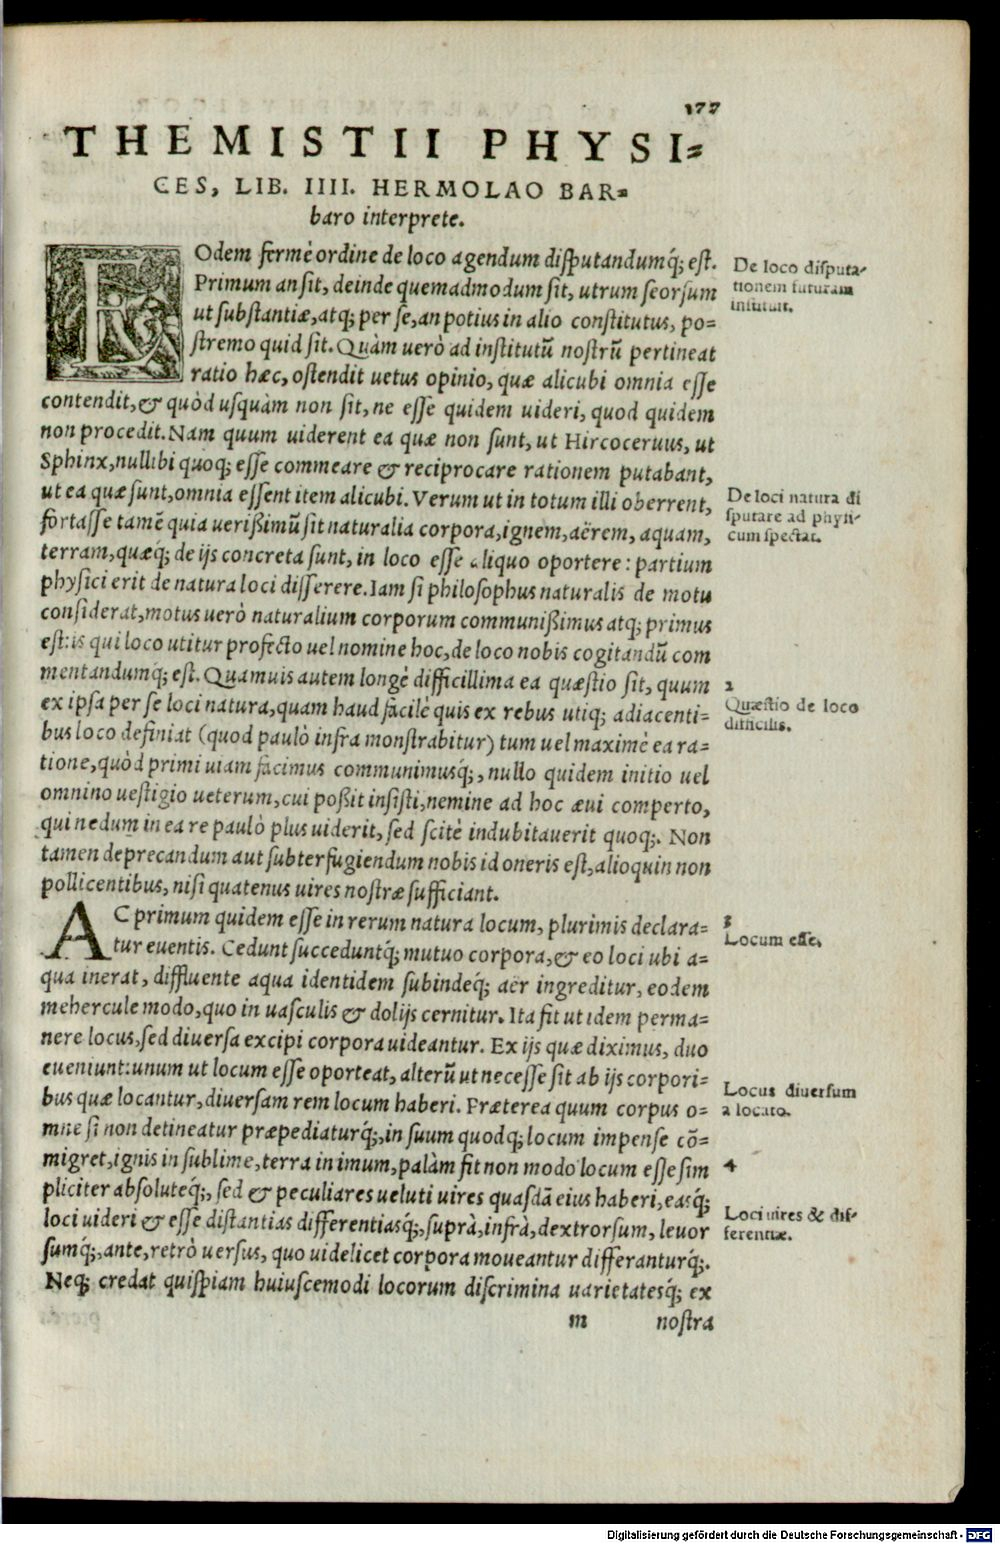 177
THEMISTII PHYSI=
CES, LIB. IIII. HERMOLAO BAR=
baro interprete.
EOdem fermè ordine de loco agendum disputandumq́; est.
Primum an sit, deinde quemadmodum sit, utrum seorsum
ut substantiæ, atq; per se, an potius in alio constitutus, po=
stremo quid sit. Quàm uerò ad institutū nostrū pertineat
ratio hæc, ostendit uetus opinio, quæ alicubi omnia esse
contendit, & quòd usquàm non sit, ne esse quidem uideri, quod quidem
non procedit. Nam quum uiderent ea quæ non sunt, ut Hircoceruus, ut
Sphinx, nullibi quoq; esse commeare & reciprocare rationem putabant,
ut ea quæ sunt, omnia essent item alicubi. Verum ut in totum illi oberrent,
fortasse tamē quia uerißimū sit naturalia corpora, ignem, aërem, aquam,
terram, quæq́; de ijs concreta sunt, in loco esse aliquo oportere: partium
physici erit de natura loci disserere. Iam si philosophus naturalis de motu
considerat, motus uerò naturalium corporum communißimus atq; primus
est: is qui loco utitur profecto uel nomine hoc, de loco nobis cogitandū com
mentandumq́; est. Quamuis autem longè difficillima ea quæstio sit, quum
ex ipsa per se loci natura, quam haud facilè quis ex rebus utiq; adiacenti=
bus loco definiat (quod paulò infra monstrabitur) tum uel maximè ea ra=
tione, quòd primi uiam facimus communimusq́;, nullo quidem initio uel
omnino uestigio ueterum, cui poßit insisti, nemine ad hoc æui comperto,
qui nedum in ea re paulò plus uiderit, sed scitè indubitauerit quoq;. Non
tamen deprecandum aut subterfugiendum nobis id oneris est, alioquin non
pollicentibus, nisi quatenus uires nostræ sufficiant.
AC primum quidem esse in rerum natura locum, plurimis declara=
tur euentis. Cedunt succeduntq́; mutuo corpora, & eo loci ubi a=
qua inerat, diffluente aqua identidem subindeq́; aër ingreditur, eodem
mehercule modo, quo in uasculis & dolijs cernitur. Ita fit ut idem perma=
nere locus, sed diuersa excipi corpora uideantur. Ex ijs quæ diximus, duo
eueniunt: unum ut locum esse oporteat, alterū ut necesse sit ab ijs corpori=
bus quæ locantur, diuersam rem locum haberi. Præterea quum corpus o=
mne si non detineatur præpediaturq́;, in suum quodq; locum impense cō=
migret, ignis in sublime, terra in imum, palàm fit non modo locum esse sim
pliciter absoluteq́;, sed & peculiares ueluti uires quasdā eius haberi, easq́;
loci uideri & esse distantias differentiasq́;, suprà, infrà, dextrorsum, leuor
sumq́;, ante, retrò uersus, quo uidelicet corpora moueantur differanturq́;.
Neq; credat quispiam huiuscemodi locorum discrimina uarietatesq́; ex
m nostra
De loco disputa=
tionem futuram
instituit.
De loci natura di
sputare ad physi=
cum spectat.
2
Quæstio de loco
difficilis.
3
Locum esse.
Locus diuersum
a locato.
4
Loci uires & dif=
ferentiæ.
Digitalisierung gefördert durch die Deutsche Forschungsgemeinschaft - DFG